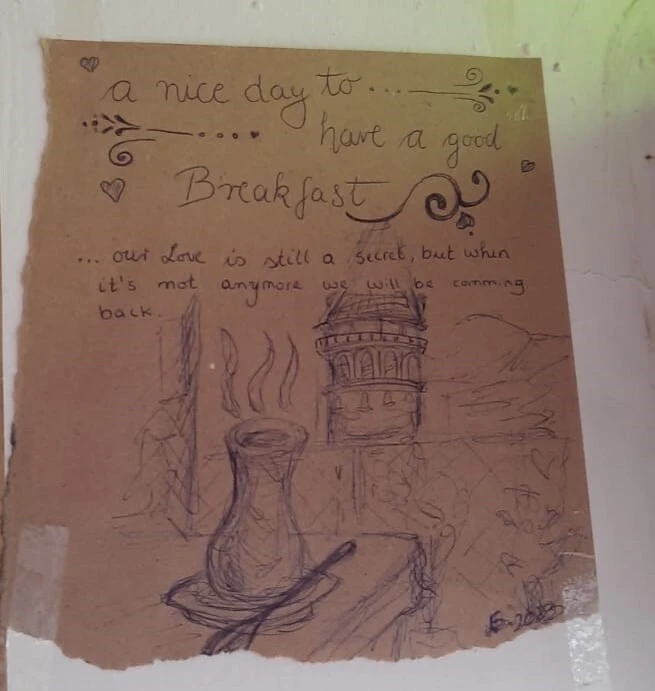 a nice day to ...
have a good
Breakfast
... our Love is still a secret, but when
it's not anymore we will be comming
back.
2023